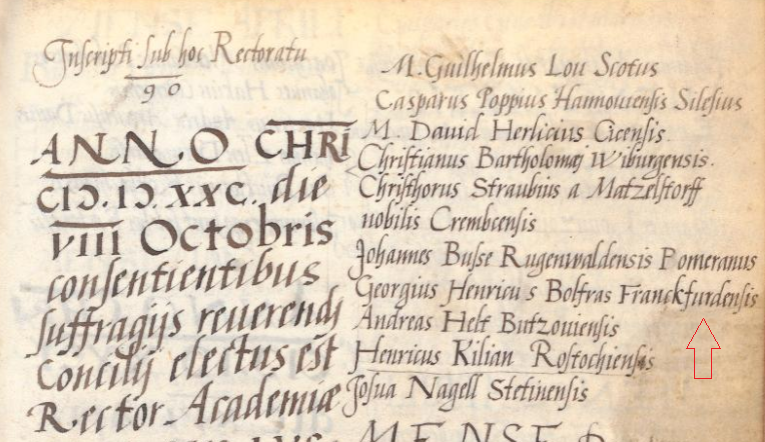 Inscripti sub hoc Rectoratu
90
ANNO CHRI
CIↃ.IↃ.XXC. die
VIII Octobris
consentientibus
suffragijs reuerendi
Concilij electus est
Rector Academiæ
M. Guilhelmus Lou Scotus
Casparus Poppius Hainouiensis Silesius
M. Dauid Herlicius Cicensis.
Christianus Bartholomæj Wiburgensis.
Christhorus Straubius a Matzelstorff
nobilis Crembcensis
Johannes Busse Rugenwaldensis Pomeranus
Georgius Henricus Bolfras Franckfurdensis
Andreas Helt Butzouiensis
Henricus Kilian Rostochiensis
Josua Nagell Stetinensis
MENSE